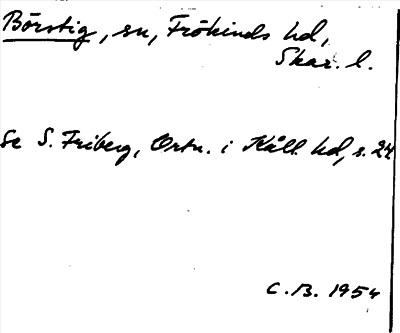 Börstig, sn, Frökinds hd,
Skar. l.
Se S. Friberg, Ortn. i Kåll. hd, s. 24.
C.B. 1954